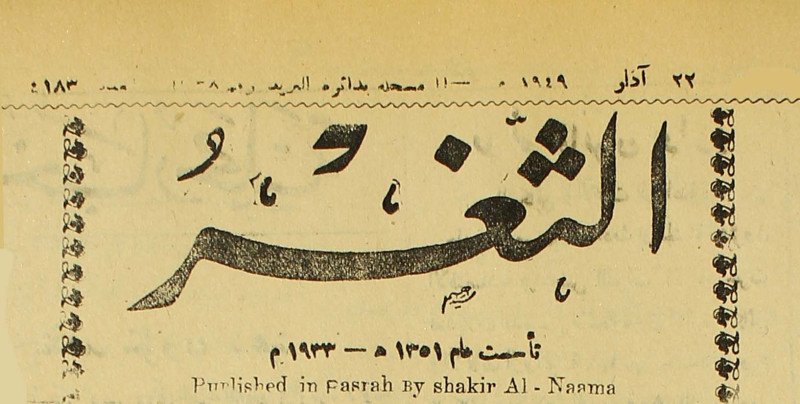 ٢٢ آذار ١٩٤٩ م — مسجله بدائرة البريد ٤١٨٣
الثغر
تأسست عام ١٣٥١ ه — ١٩٣٣ م
Published in Basrah By shakir Al - Naama